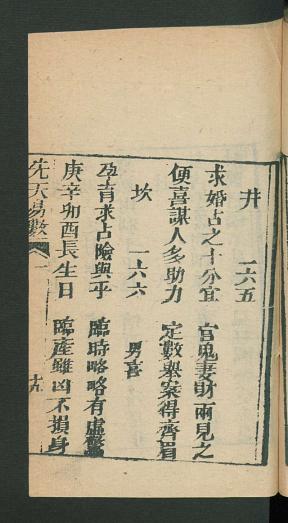 井 一六五
求婚占之十分宜 官鬼妻財兩見之
便喜謀人多助力 定數舉案得齊眉
坎 一六六 男喜
孕育求占險與乎 臨時略略有虛驚
庚辛卯酉長生日 臨產雖凶不損身
先天易數 十九